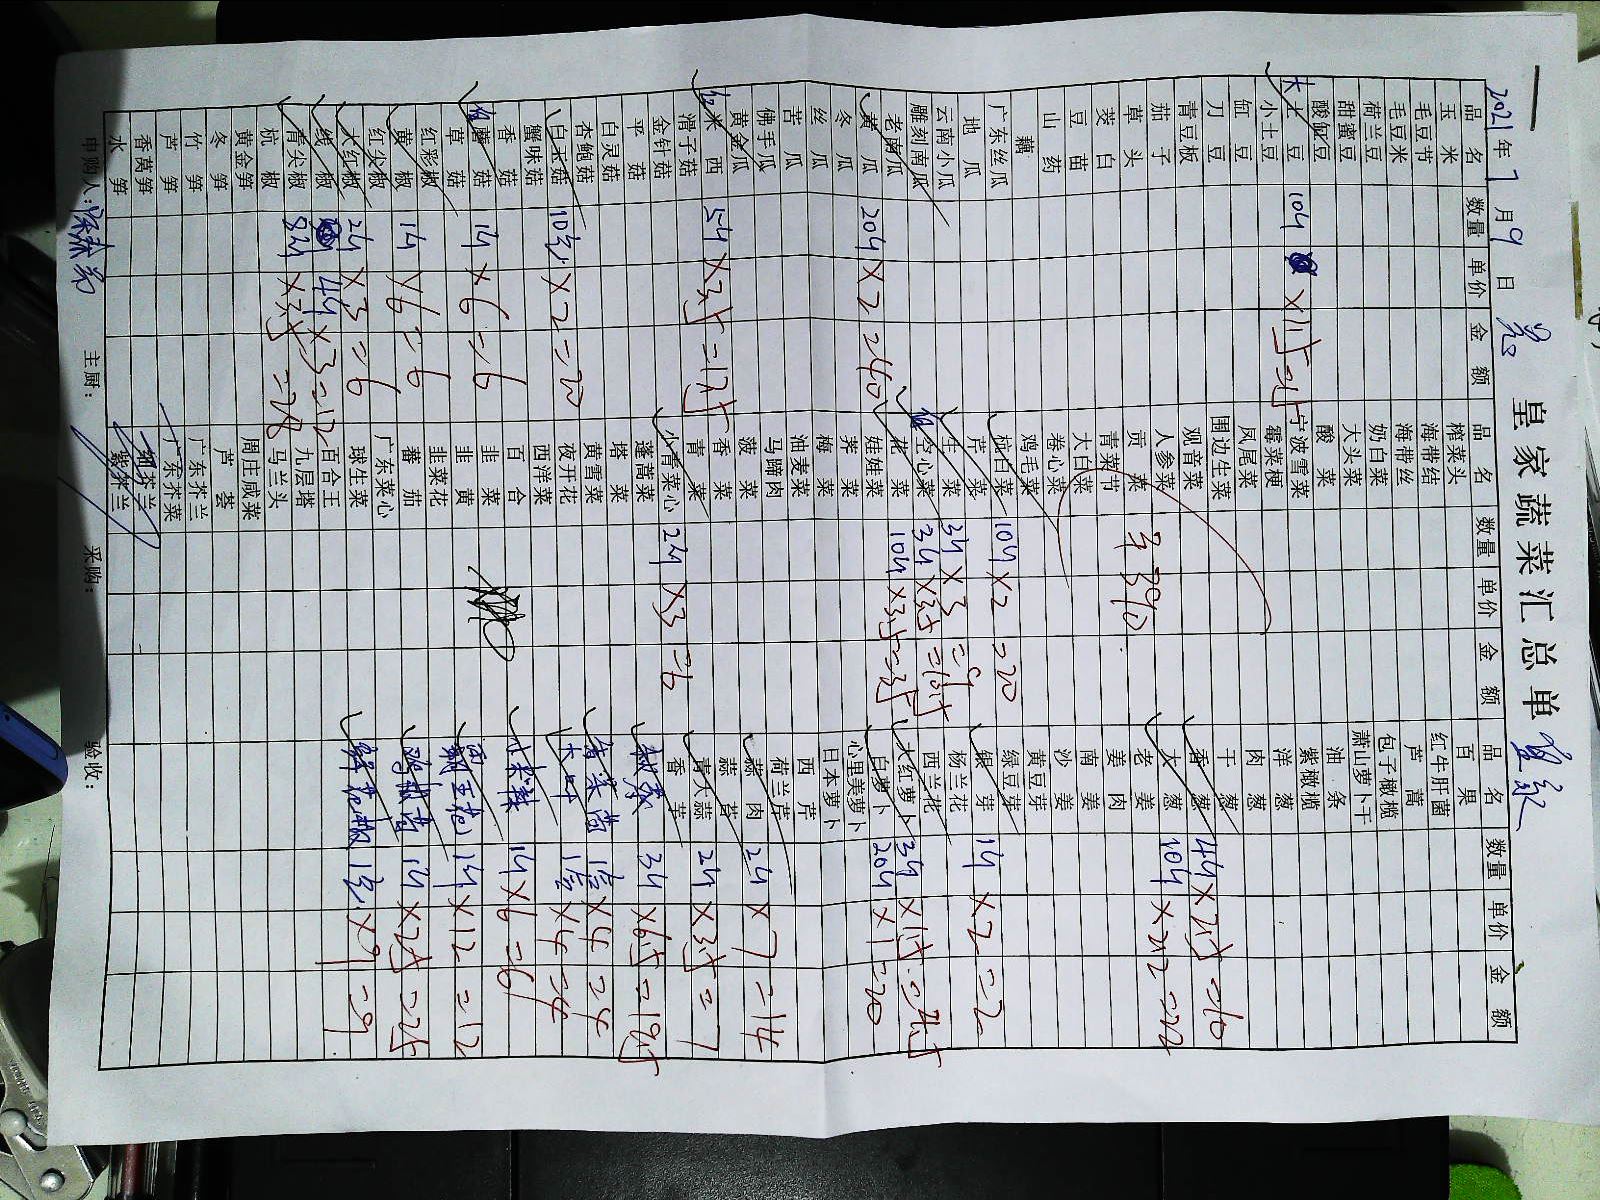 皇家蔬菜汇总单
2021年7月9日
品名 数量 单价 金额 品名 数量 单价 金额 品名 数量 单价 金额
玉米 榨菜头 百果
毛豆节 海带结 红牛肝菌
毛豆米 海带丝 芦蒿
荷兰豆 奶白菜 包子橄榄
甜蜜豆 大头菜 萧山萝卜干
酸菜 油条
大土豆 10斤 宁波雪菜 紫橄榄
小土豆 霉菜梗 洋葱
豇豆 凤尾菜 肉葱
刀豆 围边生菜 干葱
青豆板 观音菜 香葱 4斤×2.5=10
茄子 人参菜 大葱 10斤×2.2=22
草头 贡菜 老姜
茭白 青菜节 姜肉
豆苗 大白菜 南姜
山药 卷心菜 沙姜
藕 鸡毛菜 黄豆芽
广东丝瓜 杭白菜 10斤×2=20 绿豆芽
地瓜 芹菜 银芽 1斤×2=2
云南小瓜 生菜 3斤×3=9 杨兰花
雕刻南瓜 空心菜 3斤×3.5=10.5 西兰花
老南瓜 花菜 10斤×3.5=35 大红萝卜 3斤×1.5=4.5
黄瓜 20斤×2=40 娃娃菜 白萝卜 20斤×1=20
冬瓜 荠菜 心里美萝卜
丝瓜 梅菜 日本萝卜
苦瓜 油麦菜 西芹
佛手瓜 马蹄肉 荷兰芹
黄金瓜 菠菜 蒜肉 2斤×7=14
西米 5斤×3.5=17.5 香菜 蒜苔
滑子菇 青菜 青大蒜 2斤×3.5=7
金针菇 小青菜心 2斤×3=6 香芹
平菇 蓬蒿菜 3斤×6.5=19.5
白灵菇 塔菜
杏鲍菇 黄雪菜 ×4=4
白玉菇 10包×2=20 夜开花 ×4=4
蟹味菇 西洋菜
香菇 百合 1斤×6=6
蘑菇 1斤×6=6 韭菜
草菇 韭黄 1斤×12=12
红彩椒 韭菜花
黄椒 1斤×6=6 蕃茄 1斤×2.5=2.5
红尖椒 广东菜心
大红椒 2斤×3=6 球生菜 ×9=9
线椒 4斤×3=12 百合王
青尖椒 8斤×3.5=28 九层塔
杭椒 马兰头
黄金笋 周庄咸菜
冬笋 芦荟
竹笋 广东芥兰
芦笋 广东芥菜
香莴笋 细芥兰
水笋 紫芥兰
申购人: 主厨: 采购: 验收: